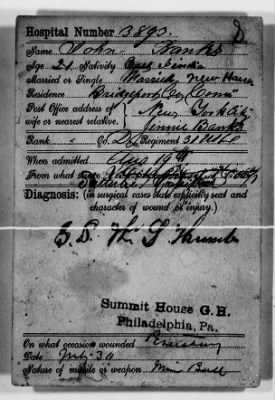 Hospital Number 3893.
Name John Banks
Age 21 Nativity
Married or Single Married New Haven
Residence Bridgeport Co Conn
Post Office address of New York City
wife or nearest relative. Banks
Rank Co. D Regiment 31
When admitted, Aug 19
From what source
Diagnosis: (in surgical cases state explicitly seat and
character of wound or injury.)
G. S. W. L Thumb
Summit House G. H.
Philadelphia, Pa.
On what occasion wounded Petersburg
Date July 30
Nature of missile or weapon Mini Ball